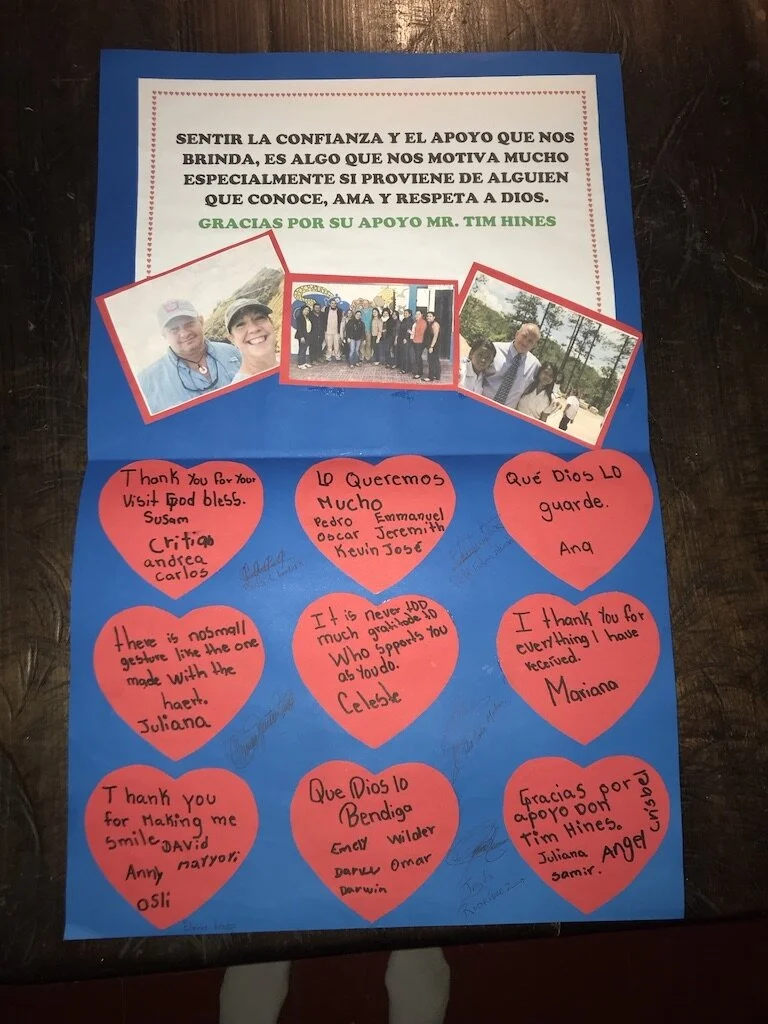 SENTIR LA CONFIANZA Y EL APOYO QUE NOS
BRINDA, ES ALGO QUE NOS MOTIVA MUCHO
ESPECIALMENTE SI PROVIENE DE ALGUIEN
QUE CONOCE, AMA Y RESPETA A DIOS.
GRACIAS POR SU APOYO MR. TIM HINES
Thank You For Your
Visit God bless.
Susam
andrea
carlos
LO Queremos
Mucho
Pedro Emmanuel
Oscar Jeremith
Kevin José
Qué Dios LO
guarde.
Ana
there is nosmall
gesture like the one
made with the
haert.
Juliana
It is never tOO
much gratitude tO
Who spports You
as Youdo.
Celeste
I thank You for
everything I have
received.
Mariana
Thank you
for Making me
smile DAVID
Anny maryori
Osli
Que Dios lo
Bendiga
Emely Wilder
Omar
Darwin
Gracias por
apoyo Don
Tim Hines.
Juliana Angel
samir.
crisbel